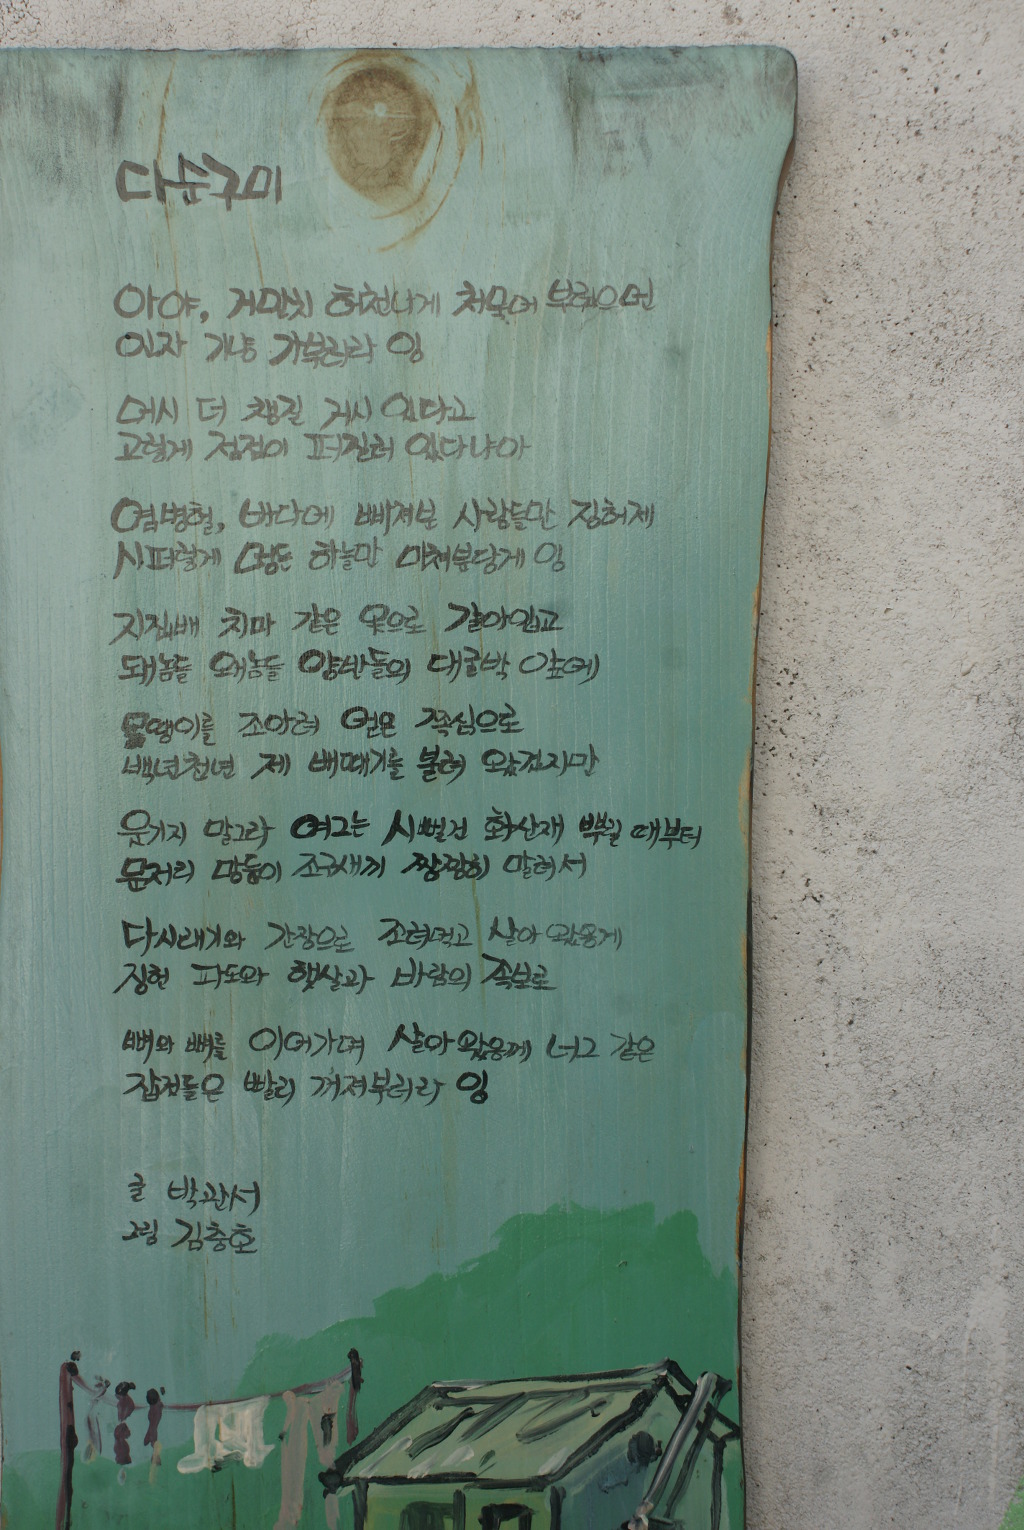 다순구미
아야, 거만치 허천나게 처묵어 부렀으면
인자 기냥 가부러라 잉
머시 더 챙길 게시 있다고
고렇게 점점이 퍼질러 있다냐아
염병헐, 바다에 빠져본 사람들만 징허제
시퍼렇게 멍든 하늘만 미쳐분당게 잉
지집배 치마 같은 옷으로 갈아입고
돼놈들 왜놈들 양반들의 대굴박 앞에
몸땡이를 조아려 얻은 쪽심으로
백년천년 제 배때기를 불려 왔겄지만
웃기지 말그라 여그는 시뻘건 화산재 뿌릴 때부터
문저리 망둥이 조구새끼 짱짱히 말려서
다시래기와 간장으로 조려먹고 살아 왔응게
징헌 파도와 햇살과 바람의 족보로
뼈와 뼈를 이어가며 살아 왔응께 너그 같은
잡것들은 빨리 꺼져부러라 잉
글 박관서
그림 김충호